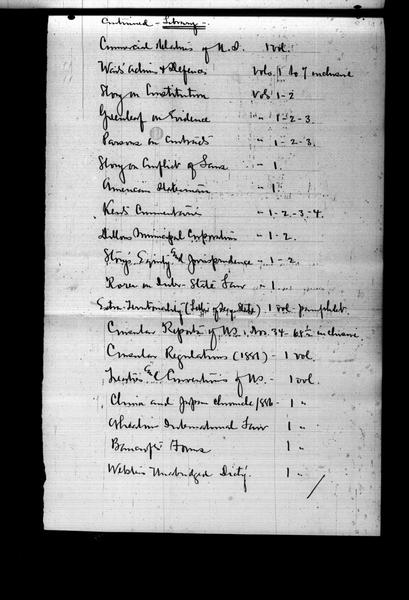 Continued - Library -
Commercial Relations of U.S. 1 vol.
Waits Actions & Defences Vols. 1 to 7 inclusive
Story on Constitution Vols 1-2
Greenleaf on Evidence " 1-2-3.
Parsons on Contracts " 1-2-3.
Story on Conflict of Laws " 1.
American Statesmen " 1.
Kent's Commentaries " 1-2-3-4.
Dillons Municipal Corporation " 1-2.
Storys Equity Jurisprudence " 1-2.
Rorer on Inter-State Law " 1.
Extra Territoriality ( of ) 1 vol. pamphlet.
Consular Reports of U.S., Nos. 34-68 inclusive.
Consular Regulations (1881) - 1 vol.
Treaties & Conventions of U.S. - 1 vol.
China and Japan Chronicle 1886 - 1 "
Wheaton International Law 1 "
Bancroft's Forms 1 "
Webster's Unabridged Dicty. 1 "